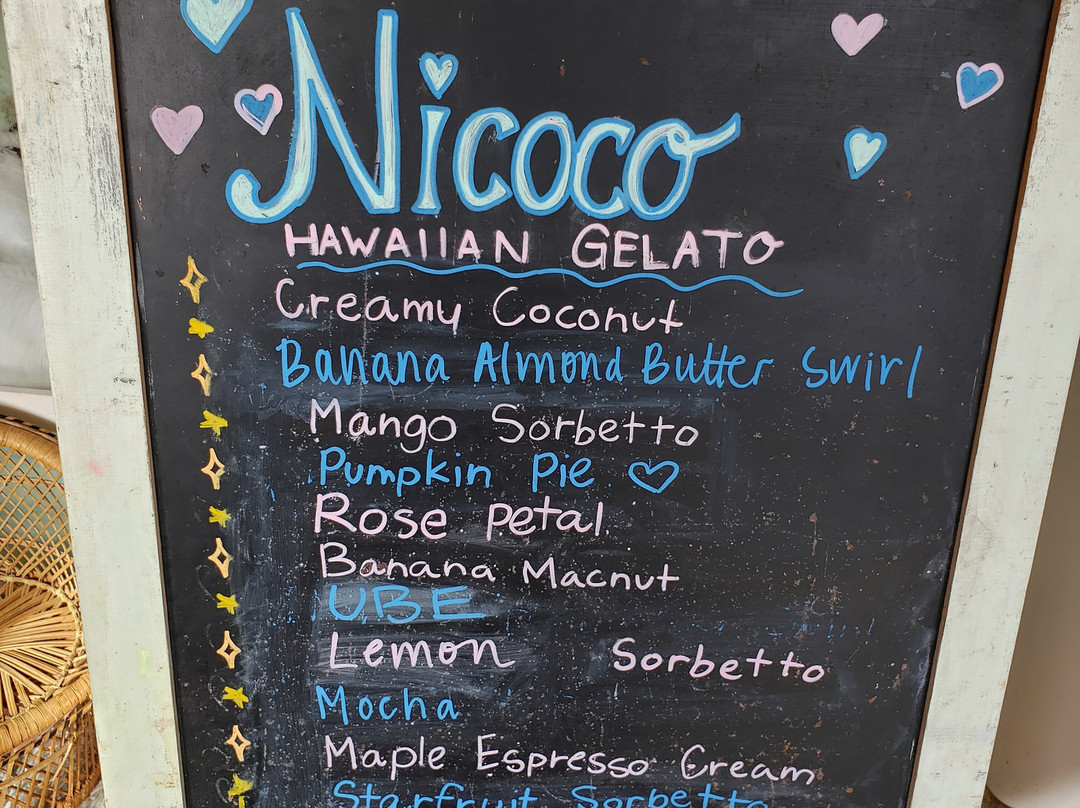 Nicoco
HAWAIIAN GELATO
Creamy Coconut
Banana Almond Butter Swirl
Mango Sorbetto
Pumpkin Pie
Rose Petal
Banana Macnut
UBE
Lemon Sorbetto
Mocha
Maple Espresso Cream
Starfruit Sorbetto